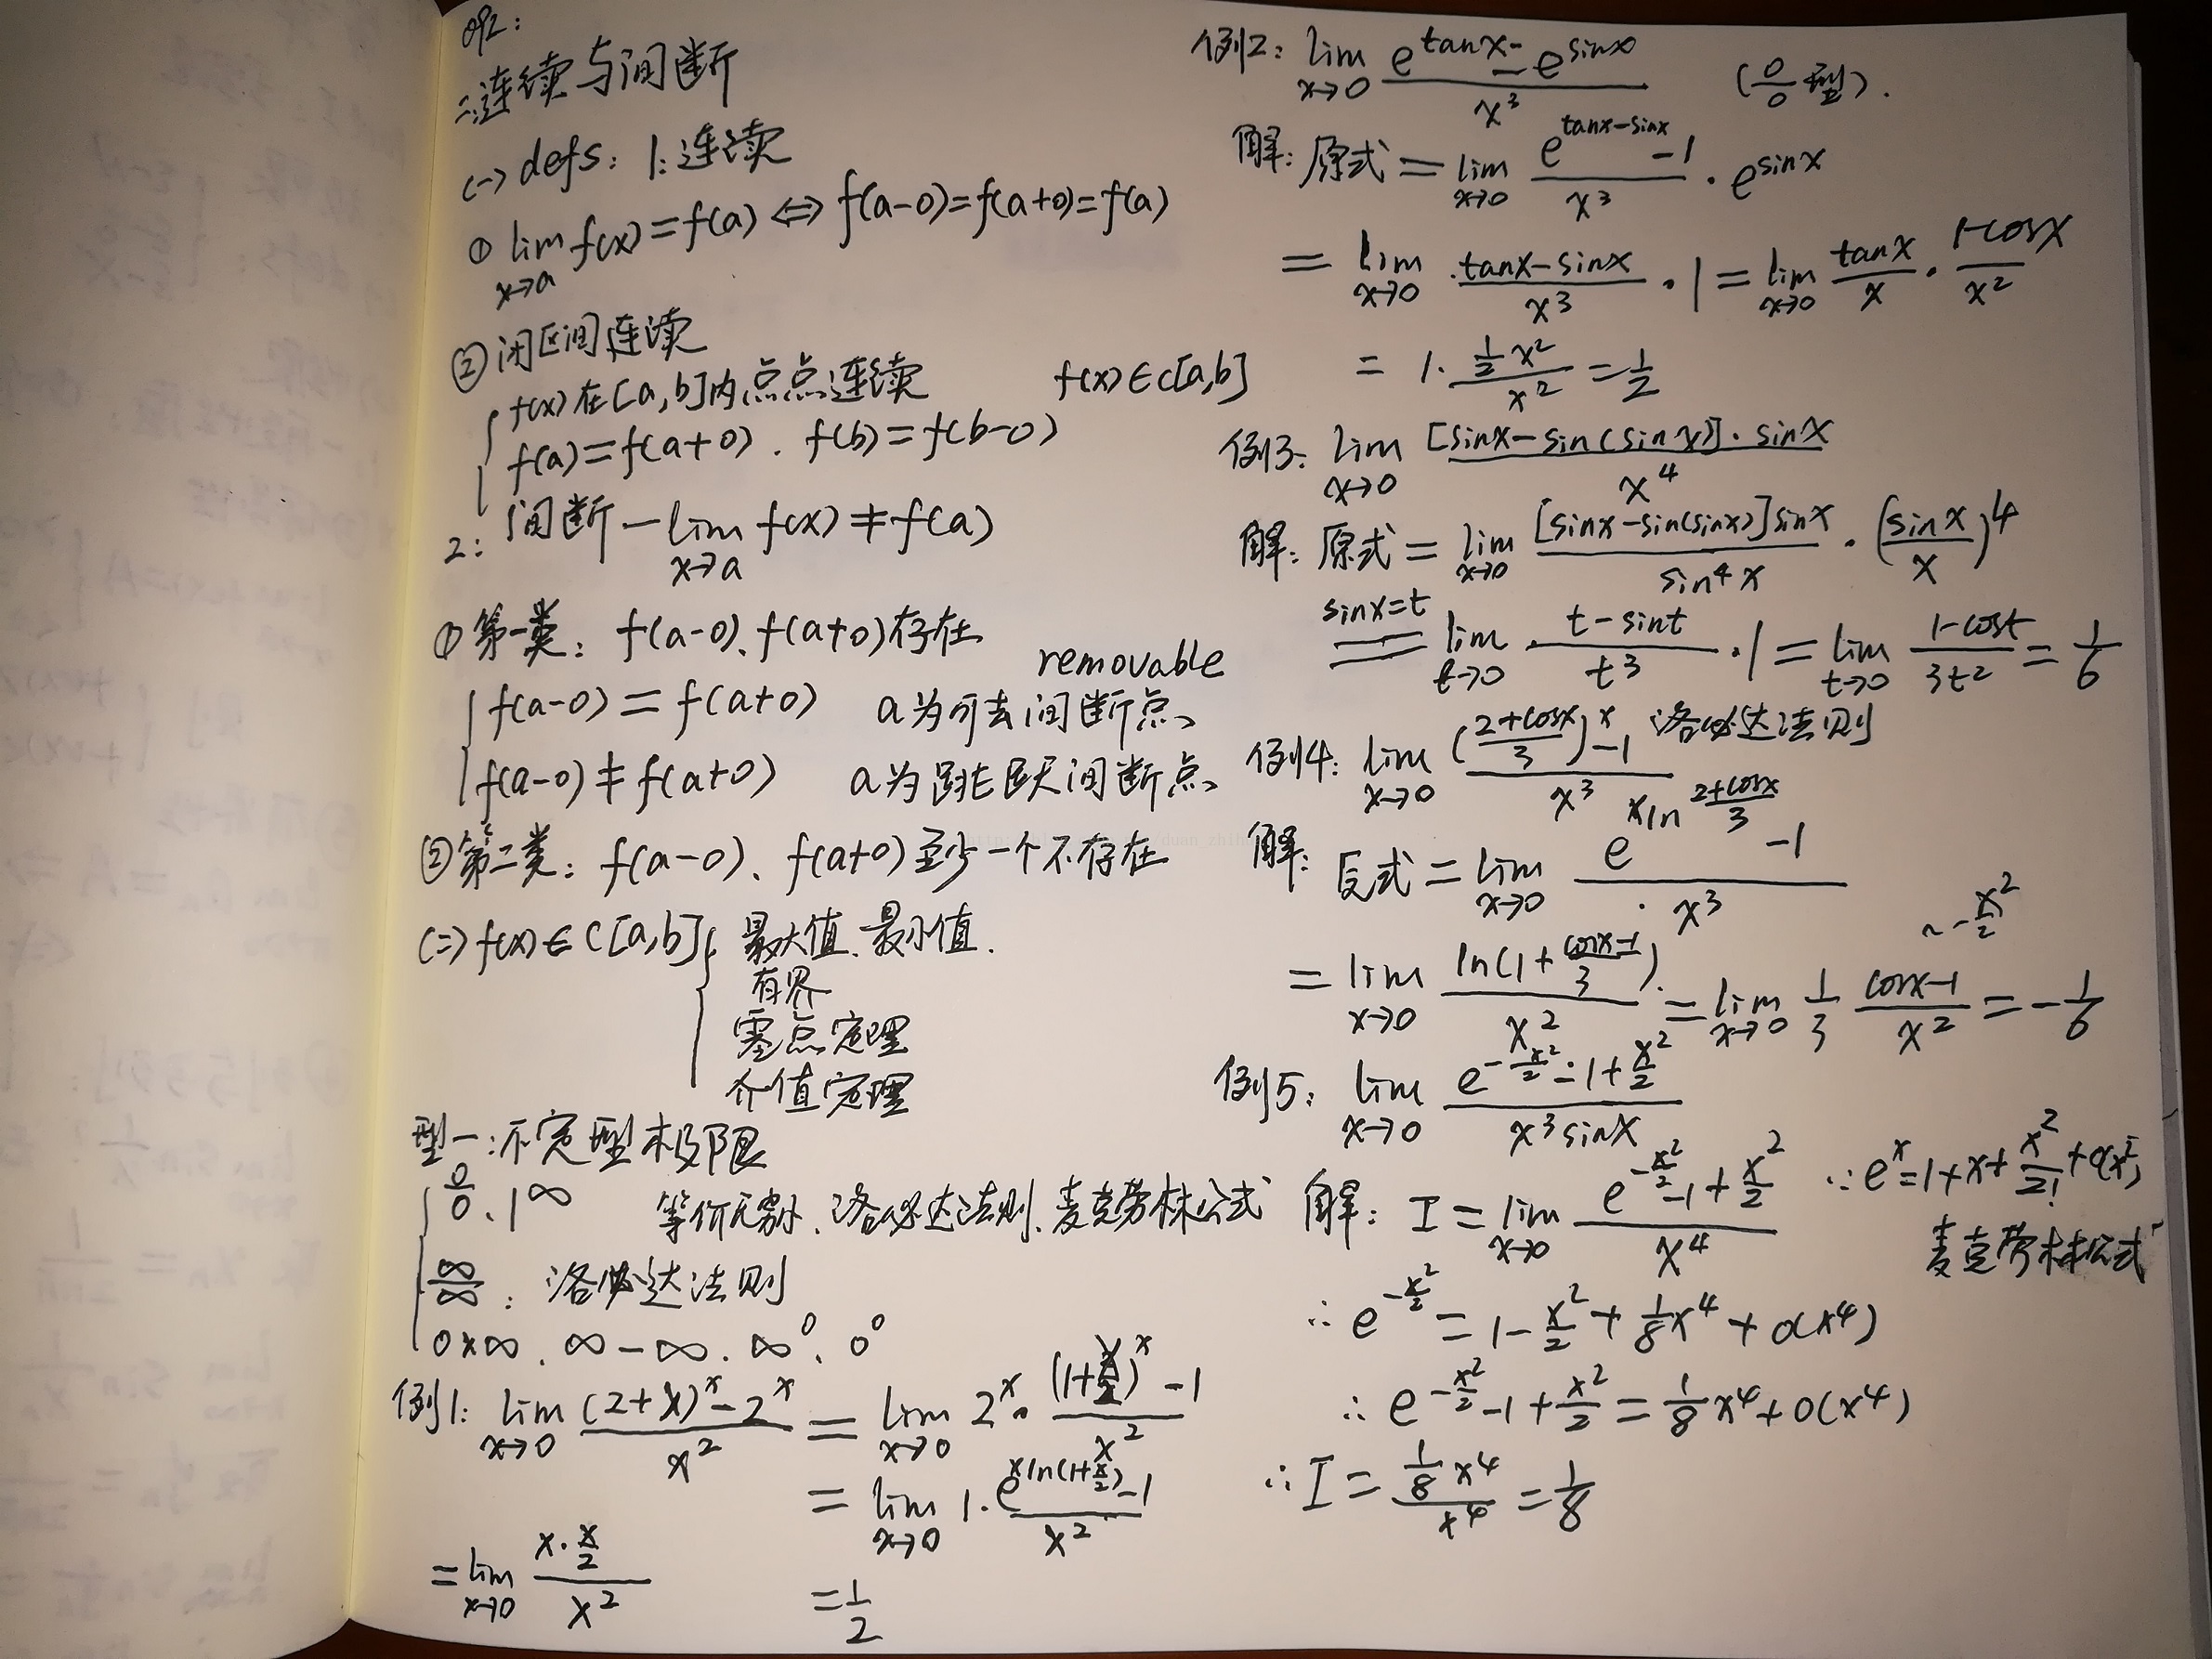 042:
二.连续与间断
(一) defs: 1.连续
① lim f(x)=f(a) ⇔ f(a-0)=f(a+0)=f(a)
x→a
② 闭区间连续
{ f(x)在[a,b]内点点连续 f(x)∈c[a,b]
f(a)=f(a+0). f(b)=f(b-0)
2: 间断 — lim f(x)≠f(a)
x→a
① 第一类: f(a-0)、f(a+0)存在
removable
{ f(a-0)=f(a+0) a为可去间断点
f(a-0)≠f(a+0) a为跳跃间断点
② 第二类: f(a-0)、f(a+0)至少一个不存在
(二) f(x)∈C[a,b] { 最大值、最小值.
有界
零点定理
介值定理
型一:不定型极限
{ 0/0、1^∞ 等价无穷小、洛必达法则、麦克劳林公式
∞/∞: 洛必达法则
0×∞、∞-∞、∞^0、0^0
例1: lim_{x→0} ((2+x)^x-2^x)/x^2 = lim_{x→0} 2^x · ((1+x/2)^x-1)/x^2
= lim_{x→0} 1·(e^{xln(1+x/2)}-1)/x^2
= lim_{x→0} (x·x/2)/x^2 = 1/2
例2: lim_{x→0} (e^{tanx}-e^{sinx})/x^3 (0/0型).
解: 原式= lim_{x→0} (e^{tanx-sinx}-1)/x^3 · e^{sinx}
= lim_{x→0} (tanx-sinx)/x^3 · 1 = lim_{x→0} tanx/x · (1-cosx)/x^2
= 1·(1/2 x^2)/x^2 = 1/2
例3: lim_{x→0} [sinx-sin(sinx)]·sinx/x^4
解: 原式= lim_{x→0} [sinx-sin(sinx)]sinx/sin^4x · (sinx/x)^4
sinx=t
== lim_{t→0} (t-sint)/t^3 ·1 = lim_{t→0} (1-cost)/3t^2 = 1/6
例4: lim_{x→0} (((2+cosx)/3)^x-1)/x^3 洛必达法则
解: 反式= lim_{x→0} (e^{xln (2+cosx)/3}-1)/x^3
~ -x^2/2
= lim_{x→0} ln(1+(cosx-1)/3)/x^2 = lim_{x→0} 1/3 (cosx-1)/x^2 = -1/6
例5: lim_{x→0} (e^{-x^2/2}-1+x^2/2)/(x^3sinx)
解: I= lim_{x→0} (e^{-x^2/2}-1+x^2/2)/x^4 ∵e^x=1+x+x^2/2!+o(x^2)
麦克劳林公式
∴ e^{-x^2/2}=1-x^2/2+1/8x^4+o(x^4)
∴ e^{-x^2/2}-1+x^2/2=1/8x^4+o(x^4)
∴ I=(1/8 x^4)/x^4=1/8